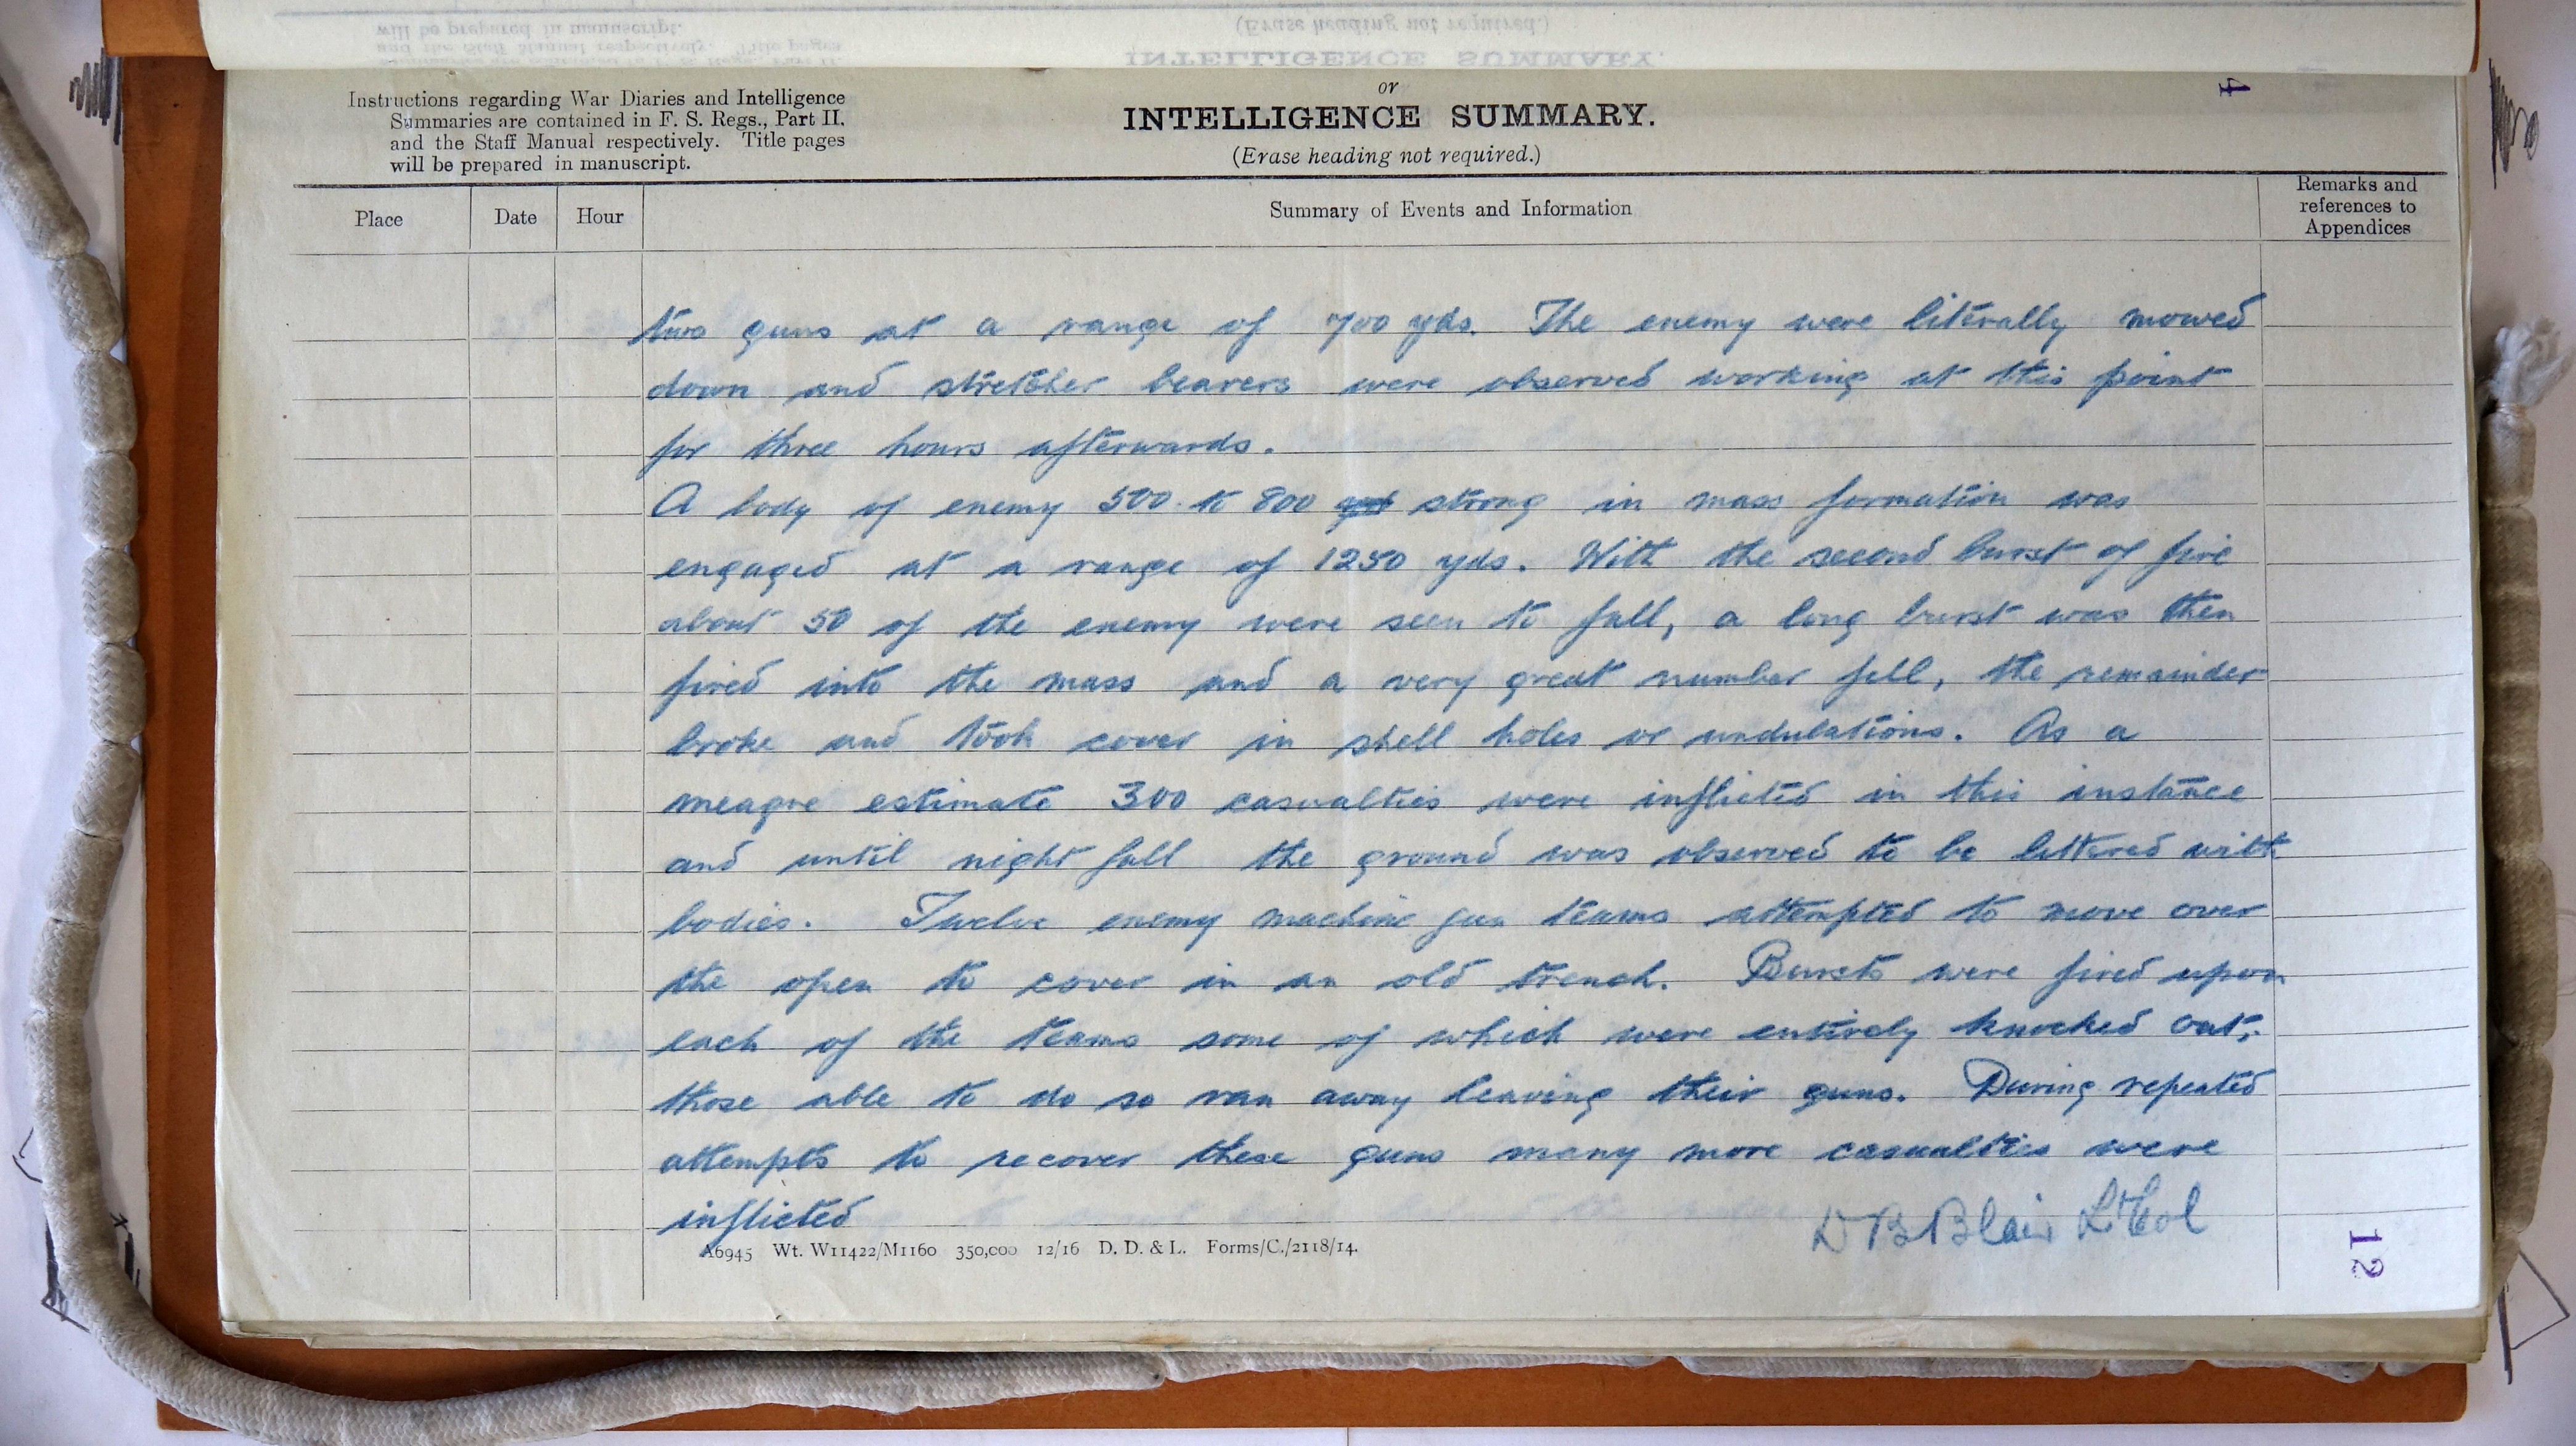 or
INTELLIGENCE SUMMARY.
(Erase heading not required.)
4
Instructions regarding War Diaries and Intelligence
Summaries are contained in F. S. Regs., Part II.
and the Staff Manual respectively. Title pages
will be prepared in manuscript.
Place
Date
Hour
Summary of Events and Information
Remarks and
references to
Appendices
two guns at a range of 700 yds. The enemy were literally mowed
down and stretcher bearers were observed working at this point
for three hours afterwards.
A body of enemy 500 to 800 strong in mass formation was
engaged at a range of 1250 yds. With the second burst of fire
about 50 of the enemy were seen to fall, a long burst was then
fired into the mass and a very great number fell, the remainder
broke and took cover in shell holes or undulations. As a
meagre estimate 300 casualties were inflicted in this instance
and until night fall the ground was observed to be littered with
bodies. Twelve enemy machine gun teams attempted to move over
the open to cover in an old trench. Bursts were fired upon
each of the teams some of which were entirely knocked out;
those able to do so ran away leaving their guns. During repeated
attempts to recover these guns many more casualties were
inflicted
D B Blair Lt Col
A6945 Wt. W11422/M1160 350,000 12/16 D. D. & L. Forms/C./2118/14.
12